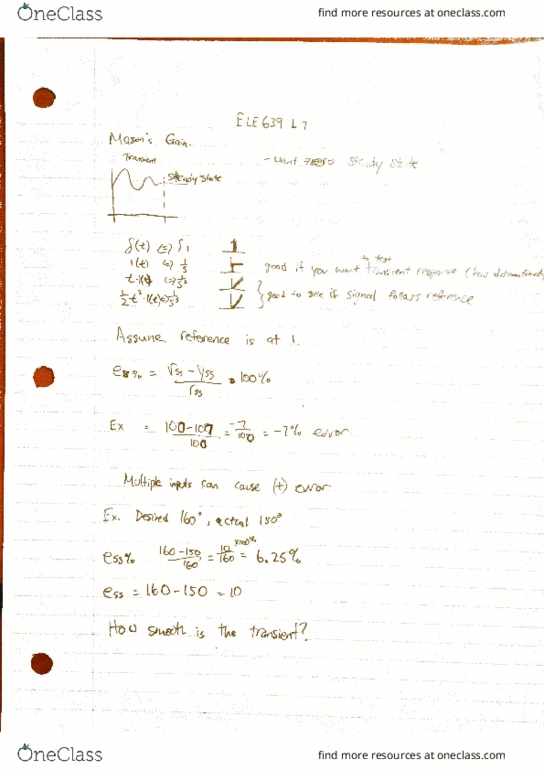 OneClass
find more resources at oneclass.com
ELE639 L7
Mason's Gain.
Transient
Steady State
- want zero steady state
δ(t) ⇔ 1
1(t) ⇔ 1/s
to test
good if you want transient response (has discontinuity
t·1(t) ⇔ 1/s²
1/2 t²·1(t) ⇔ 1/s³
good to see if signal follows reference
Assume reference is at 1.
ess% = rss - yss / rss · 100%
Ex = 100-107 / 100 = -7/100 = -7% error
Multiple inputs can cause (+) error
Ex. Desired 160°, actual 150°
ess% 160-150 / 160 = 10/160 ×100% = 6.25%
ess = 160-150 = 10
How smooth is the transient?
OneClass
find more resources at oneclass.com